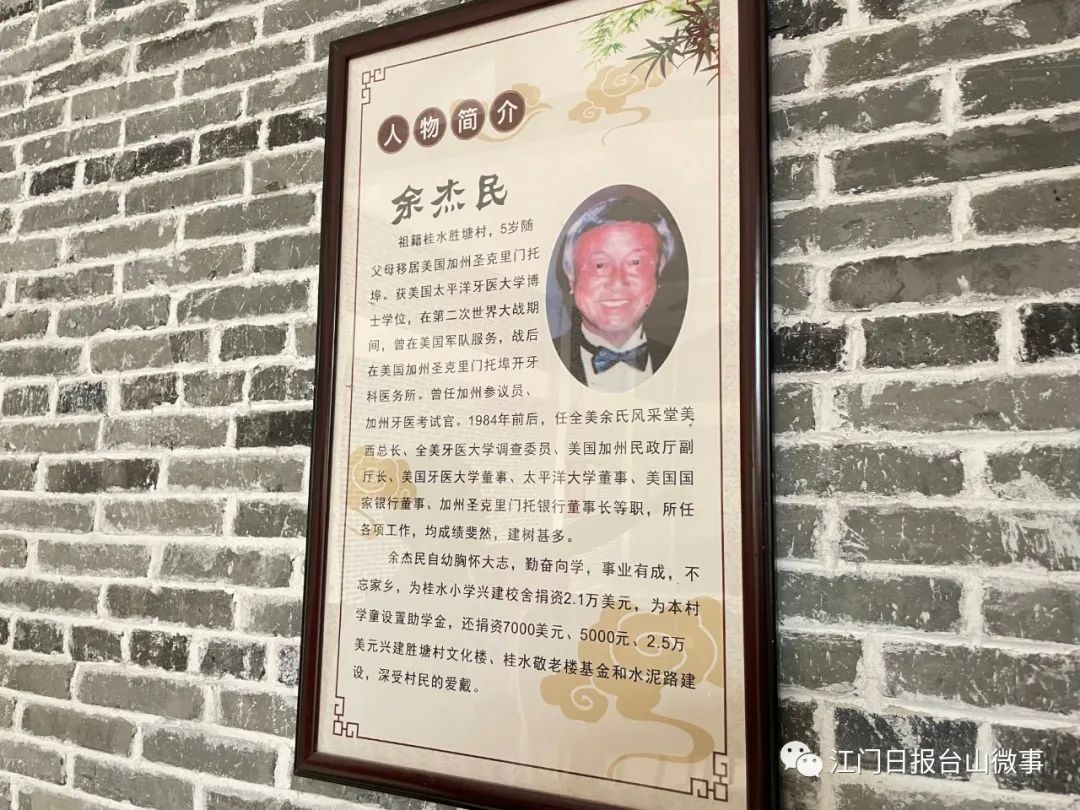 人物简介
余杰民
祖籍桂水胜塘村，5岁随
父母移居美国加州圣克里门托
埠。获美国太平洋牙医大学博
士学位，在第二次世界大战期
间，曾在美国军队服务，战后
在美国加州圣克里门托埠开牙
科医务所。曾任加州参议员、
加州牙医考试官。1984年前后，任全美余氏风采堂美
西总长、全美牙医大学调查委员、美国加州民政厅副
厅长、美国牙医大学董事、太平洋大学董事、美国国
家银行董事、加州圣克里门托银行董事长等职，所任
各项工作，均成绩斐然，建树甚多。
余杰民自幼胸怀大志，勤奋向学，事业有成，不
忘家乡，为桂水小学兴建校舍捐资2.1万美元，为本村
学童设置助学金，还捐资7000美元、5000元、2.5万
美元兴建胜塘村文化楼、桂水敬老楼基金和水泥路建
设，深受村民的爱戴。
江门日报台山微事